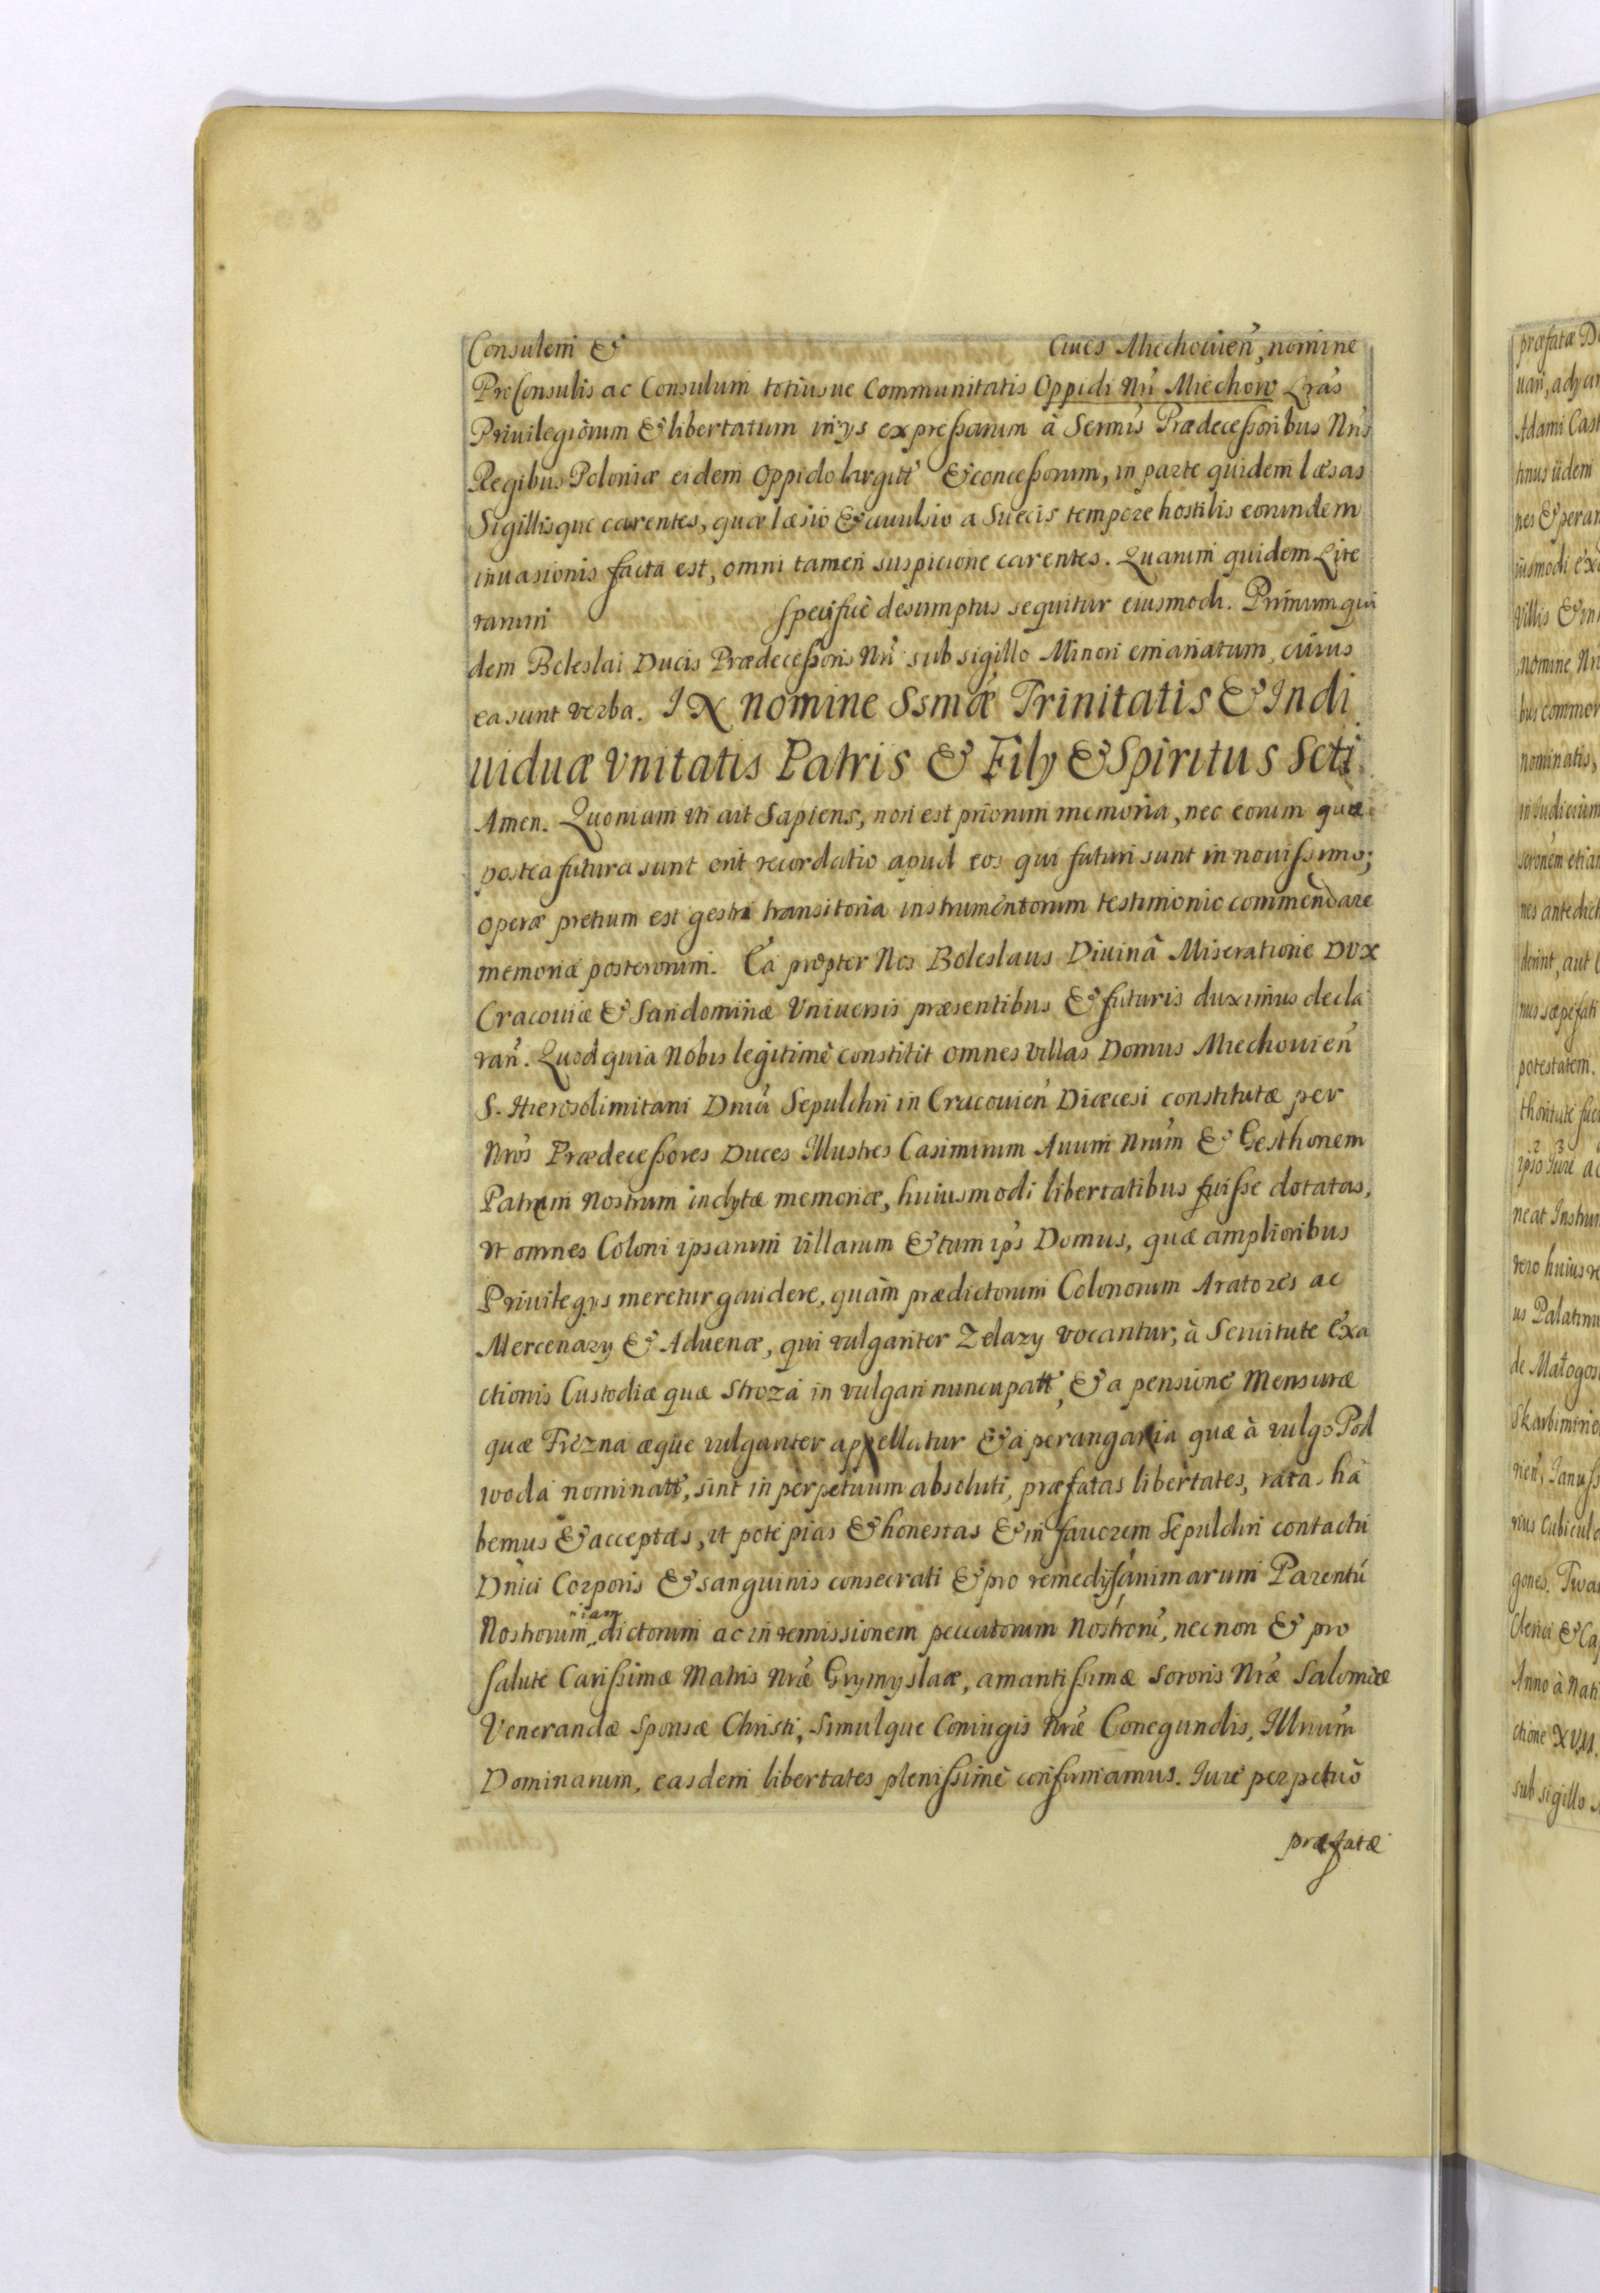 Consulem & Ciues Miechouień, nomine
ProConsulis ac Consulum totiusue Communitatis Oppidi Nrı̃ Miechow Lrãs
Priuilegiorum & libertatum in ijs expressarum à Sermis Prædecessoribus Nrı̃s
Regibus Poloniæ eidem Oppido largitt & concessorum, in parte quidem læsas
Sigillisque carentes, quæ læsio & auulsio a Suecis tempore hostilis eorundem
inuasionis facta est, omni tamen suspicione carentes. Quarum quidem Lite
rarum specifice desumptus sequitur eiusmodi. Primum qui
dem Boleslai Ducis Prædecessoris Nrı̃ sub sigillo Minori emanatum, cuius
ea sunt verba. IN nomine Ssmæ Trinitatis & Indi
uiduæ Vnitatis Patris & Filÿ & Spiritus Scti
Amen. Quoniam vti ait Sapiens, non est priorum memoria, nec eorum quæ
postea futura sunt erit recordatio apud eos qui futuri sunt in nouissimo;
operæ pretium est gesta transitoria instrumentorum testimonio commendare
memoriæ posterorum. Ea propter Nos Boleslaus Diuinâ Miseratione Dux
Cracouiæ & Sandomiriæ Vniuersis præsentibus & futuris duximus decla
rań. Quod quia Nobis legitimè constitit omnes villas Domus Miechouień
S. Hierosolimitani Dnici Sepulchri in Cracouień Diæcesi constitutæ per
Nrõs Prædecessores Duces Illustres Casimirum Auum Nrum & Gesthonem
Patrem Nostrum inclytæ memoriæ, huiusmodi libertatibus fuisse dotatas,
vt omnes Coloni ipsarum villarum & tum ips Domus, quæ amplioribus
Priuilegijs meretur gaudere, quàm prædictorum Colonorum Aratores ac
Mercenarij & Aduenæ, qui vulgariter Zelazy vocantur, à Seruitute exa
ctionis Custodiæ quæ Stroza in vulgari nuncupatt, & a pensione Mensuræ
quæ Frezna æque vulgariter appellatur & à perangaria quæ à vulgo Pod
woda nominatt, sint in perpetuum absoluti, præfatas libertates, ratas ha
bemus & acceptas, vt pote pias & honestas & in fauorem Sepulchri contactu
Dnici Corporis & sanguinis consecrati & pro remedijs animarum Parentũ
Nostrorum iam dictorum ac in remissionem peccatorum Nostrorũ, nec non & pro
salute Carissimæ Matris Nræ Grymyslaæ, amantissimæ Sororis Nræ Salomeæ
Venerandæ Sponsæ Christi, Simulque Coniugis Nræ Conegundis, Illrium
Dominarum, easdem libertates plenissime confirmamus. Iure perpetuo
præfatæ